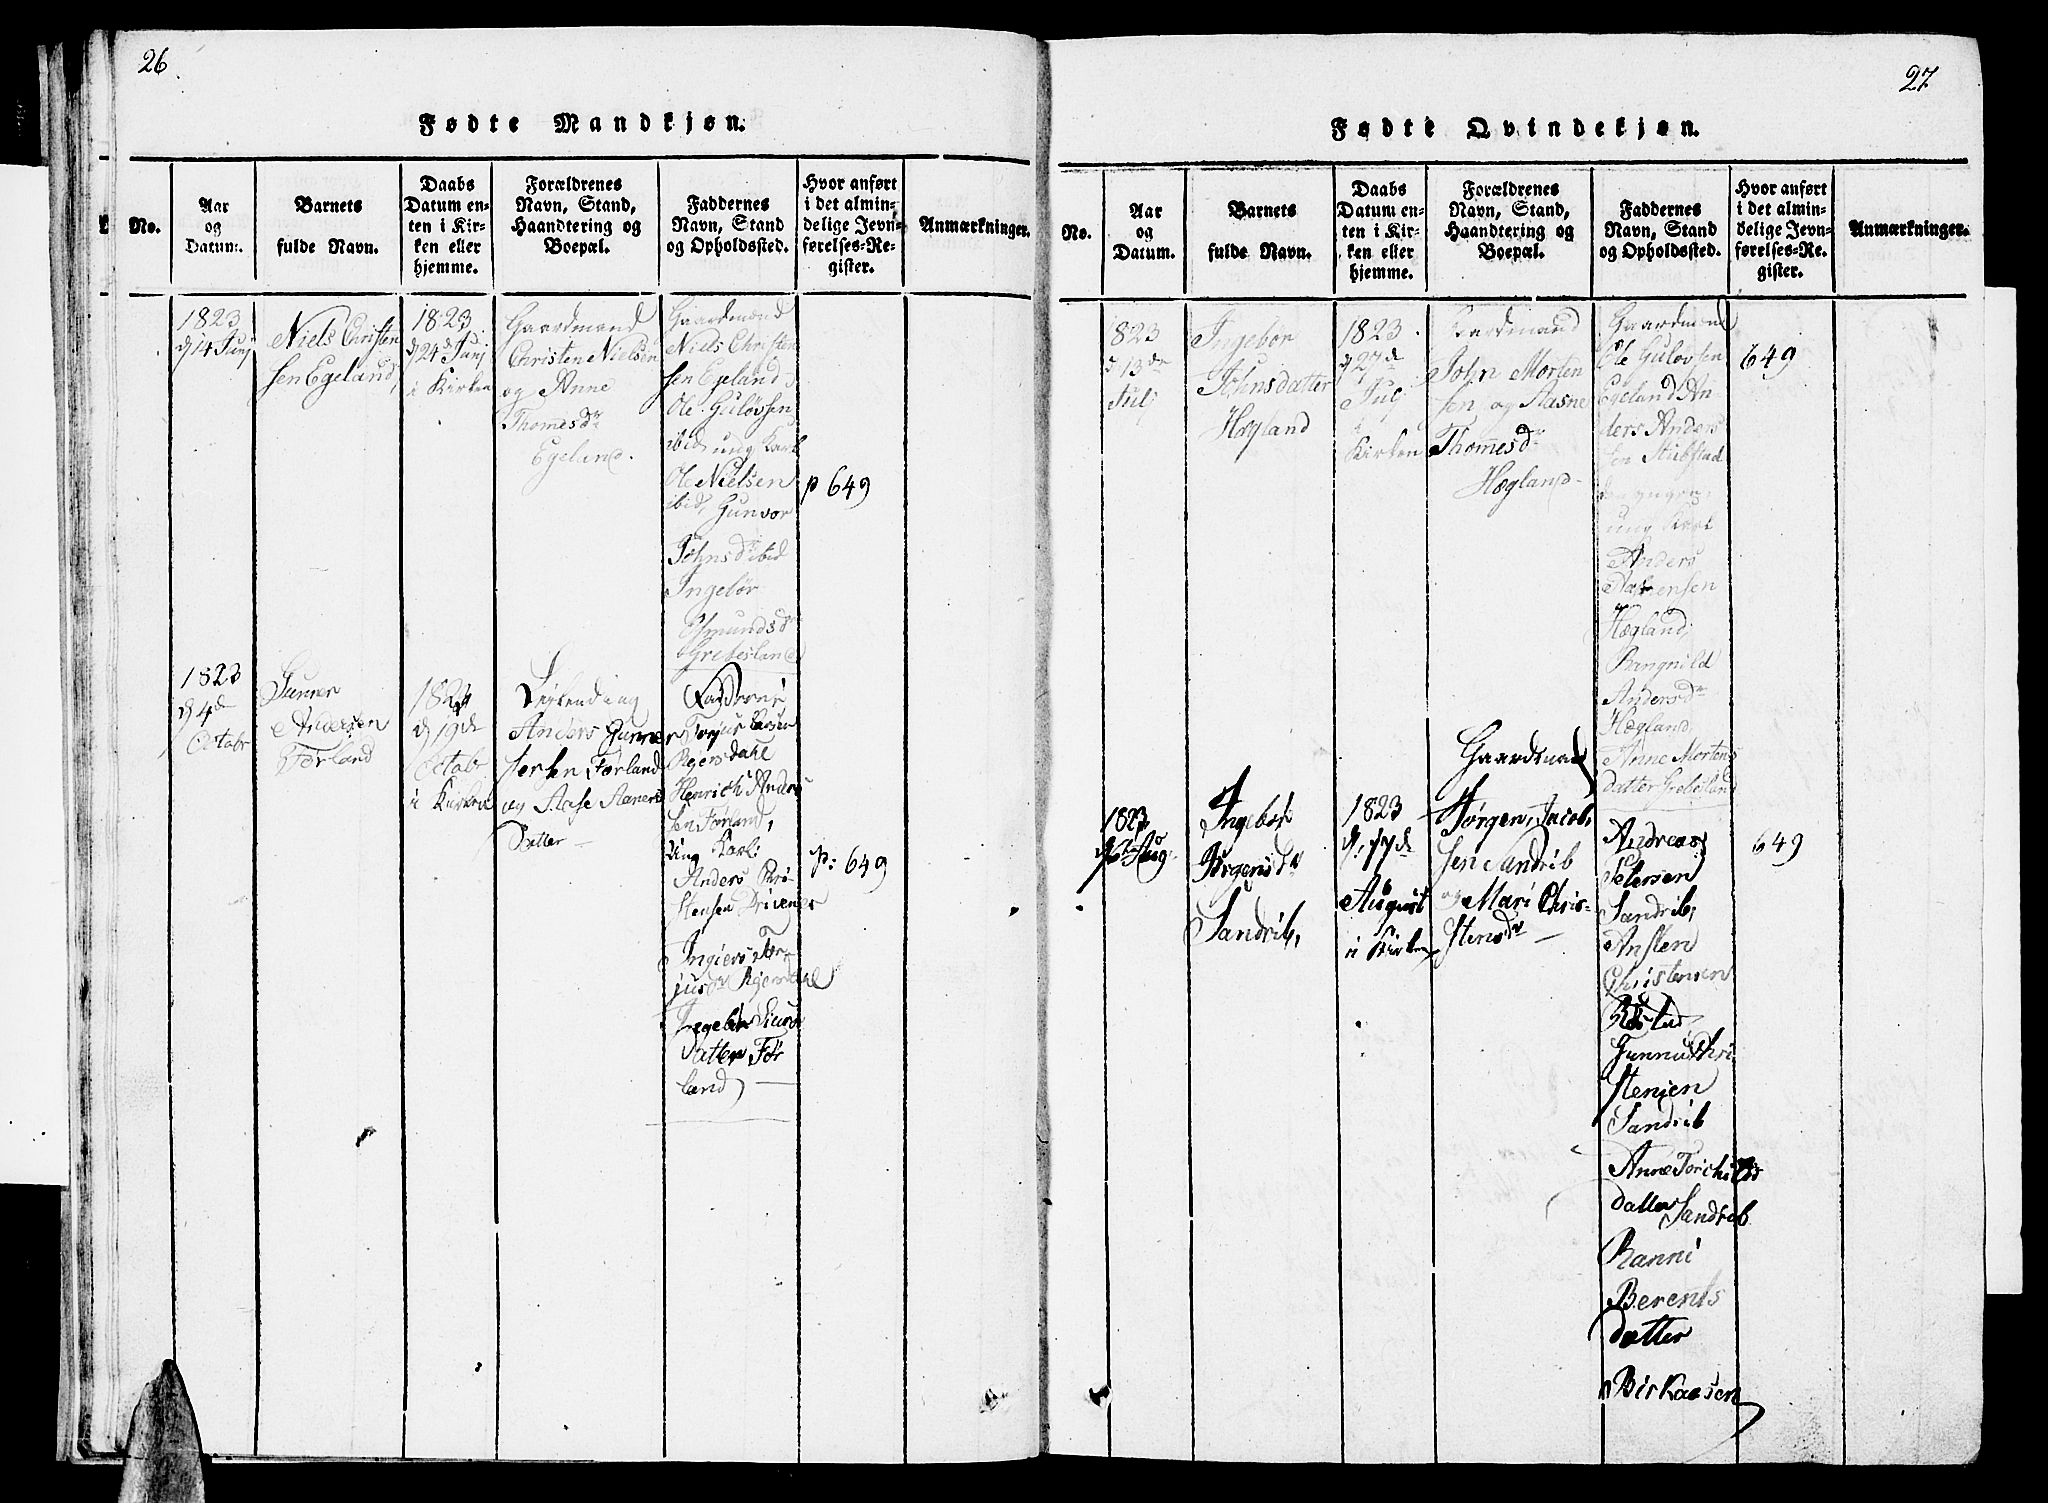 26
Fødte Mandkjøn.
No.
Aar
og
Datum.
Barnets
fulde Navn.
Daabs
Datum en-
ten i Kir-
ken eller
hjemme.
Forældrenes
Navn, Stand,
Haandtering og
Boepæl.
Faddernes
Navn, Stand
og Opholdssted.
Hvor anført
i det almin-
delige Jevn-
førelses-Re-
gister.
Anmærkninger.
1823
d 14 Junj
Niels Christen
sen Egeland,
1823
d 24d Junj
i Kirken
Gaardmand
Christen Nielsen
og Anne
Thomesdr
Egeland.
Gaardmand
Niels Christen
sen Egeland,
Ole Guløvsen
ibid ung Karl
Ole Nielsen
ibid, Gunvor
Johnsdr ibid
Ingebør
Grebesland
p 649
1823
d 4d
Octobr
Andersen
Førland
d 19d
Octobr
i Kirken
Anders Gunner
sen Førland
og Aase
Datter
Henrich Anders
sen Førland,
Ung Karl:
Anders Chri-
stensen Drivenes
Ingebør
Datter Før
land
p: 649
27
Fødte Qvindekjøn.
No.
Aar
og
Datum.
Barnets
fulde Navn.
Daabs
Datum en-
ten i Kir-
ken eller
hjemme.
Forældrenes
Navn, Stand,
Haandtering og
Boepæl.
Faddernes
Navn, Stand
og Opholdssted.
Hvor anført
i det almin-
delige Jevn-
førelses-Re-
gister.
Anmærkninger.
1823
d 13de
Julj
Ingebor
Johnsdatter
Hægland
1823
d 27d
Julj
i
Kirken
Gaardmand
John Morten
sen og Aasne
Thomesdr
Hægland
Gaardmand
Ole Guløvsen
Egeland An
ders Anders
sen Stubstad
ung Karl
Anders
Hægland,
Rangnild
Andersdr
Hægland,
Anne Mortens
datter Grebesland
649
1823
Aug.
Ingebor
Jørgensdr
Sandrib,
1823
d. 17d
August
i Kirken
Gaardmand
Jørgen Jacob,
sen Sandrib
og Mari Chris-
stensdr
Andreas
Petersen
Sandrib,
Ansten
Christensen
Gunnu Chri
stensen
Sandrib
Anne Torchilds
datter Sandrib
Ranni
Berents
datter
Birkaasen
649